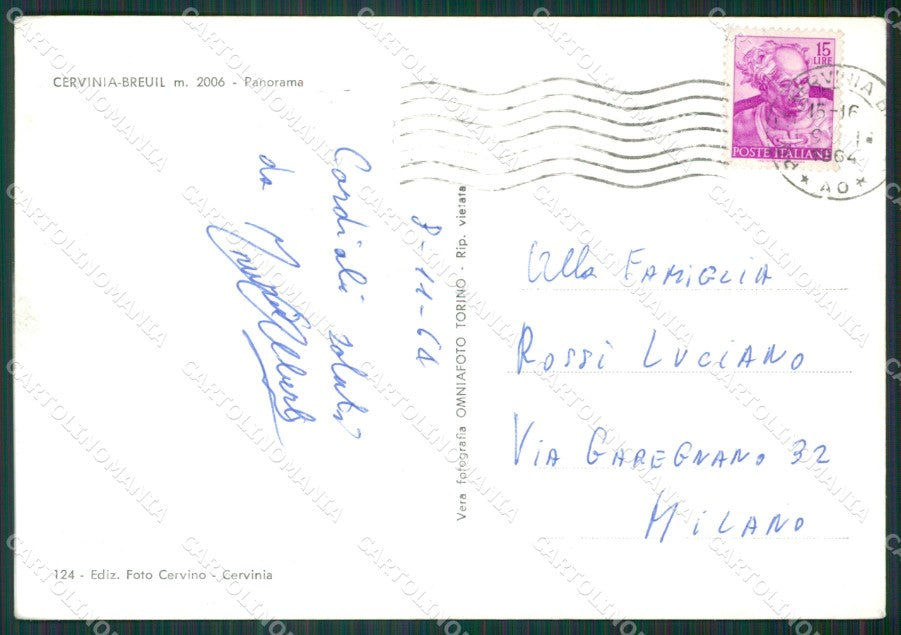 CERVINIA-BREUIL m. 2006 - Panorama
Cordiali saluti
da
8-11-64
Vera fotografia OMNIAFOTO TORINO - Rip. vietata
15
LIRE
POSTE ITALIANE
CERVINIA
15-16
1964
★ AO ★
Alla FAMIGLIA
ROSSI LUCIANO
VIA GAREGNANO 32
MILANO
124 - Ediz. Foto Cervino - Cervinia
CARTOLINOMANIA